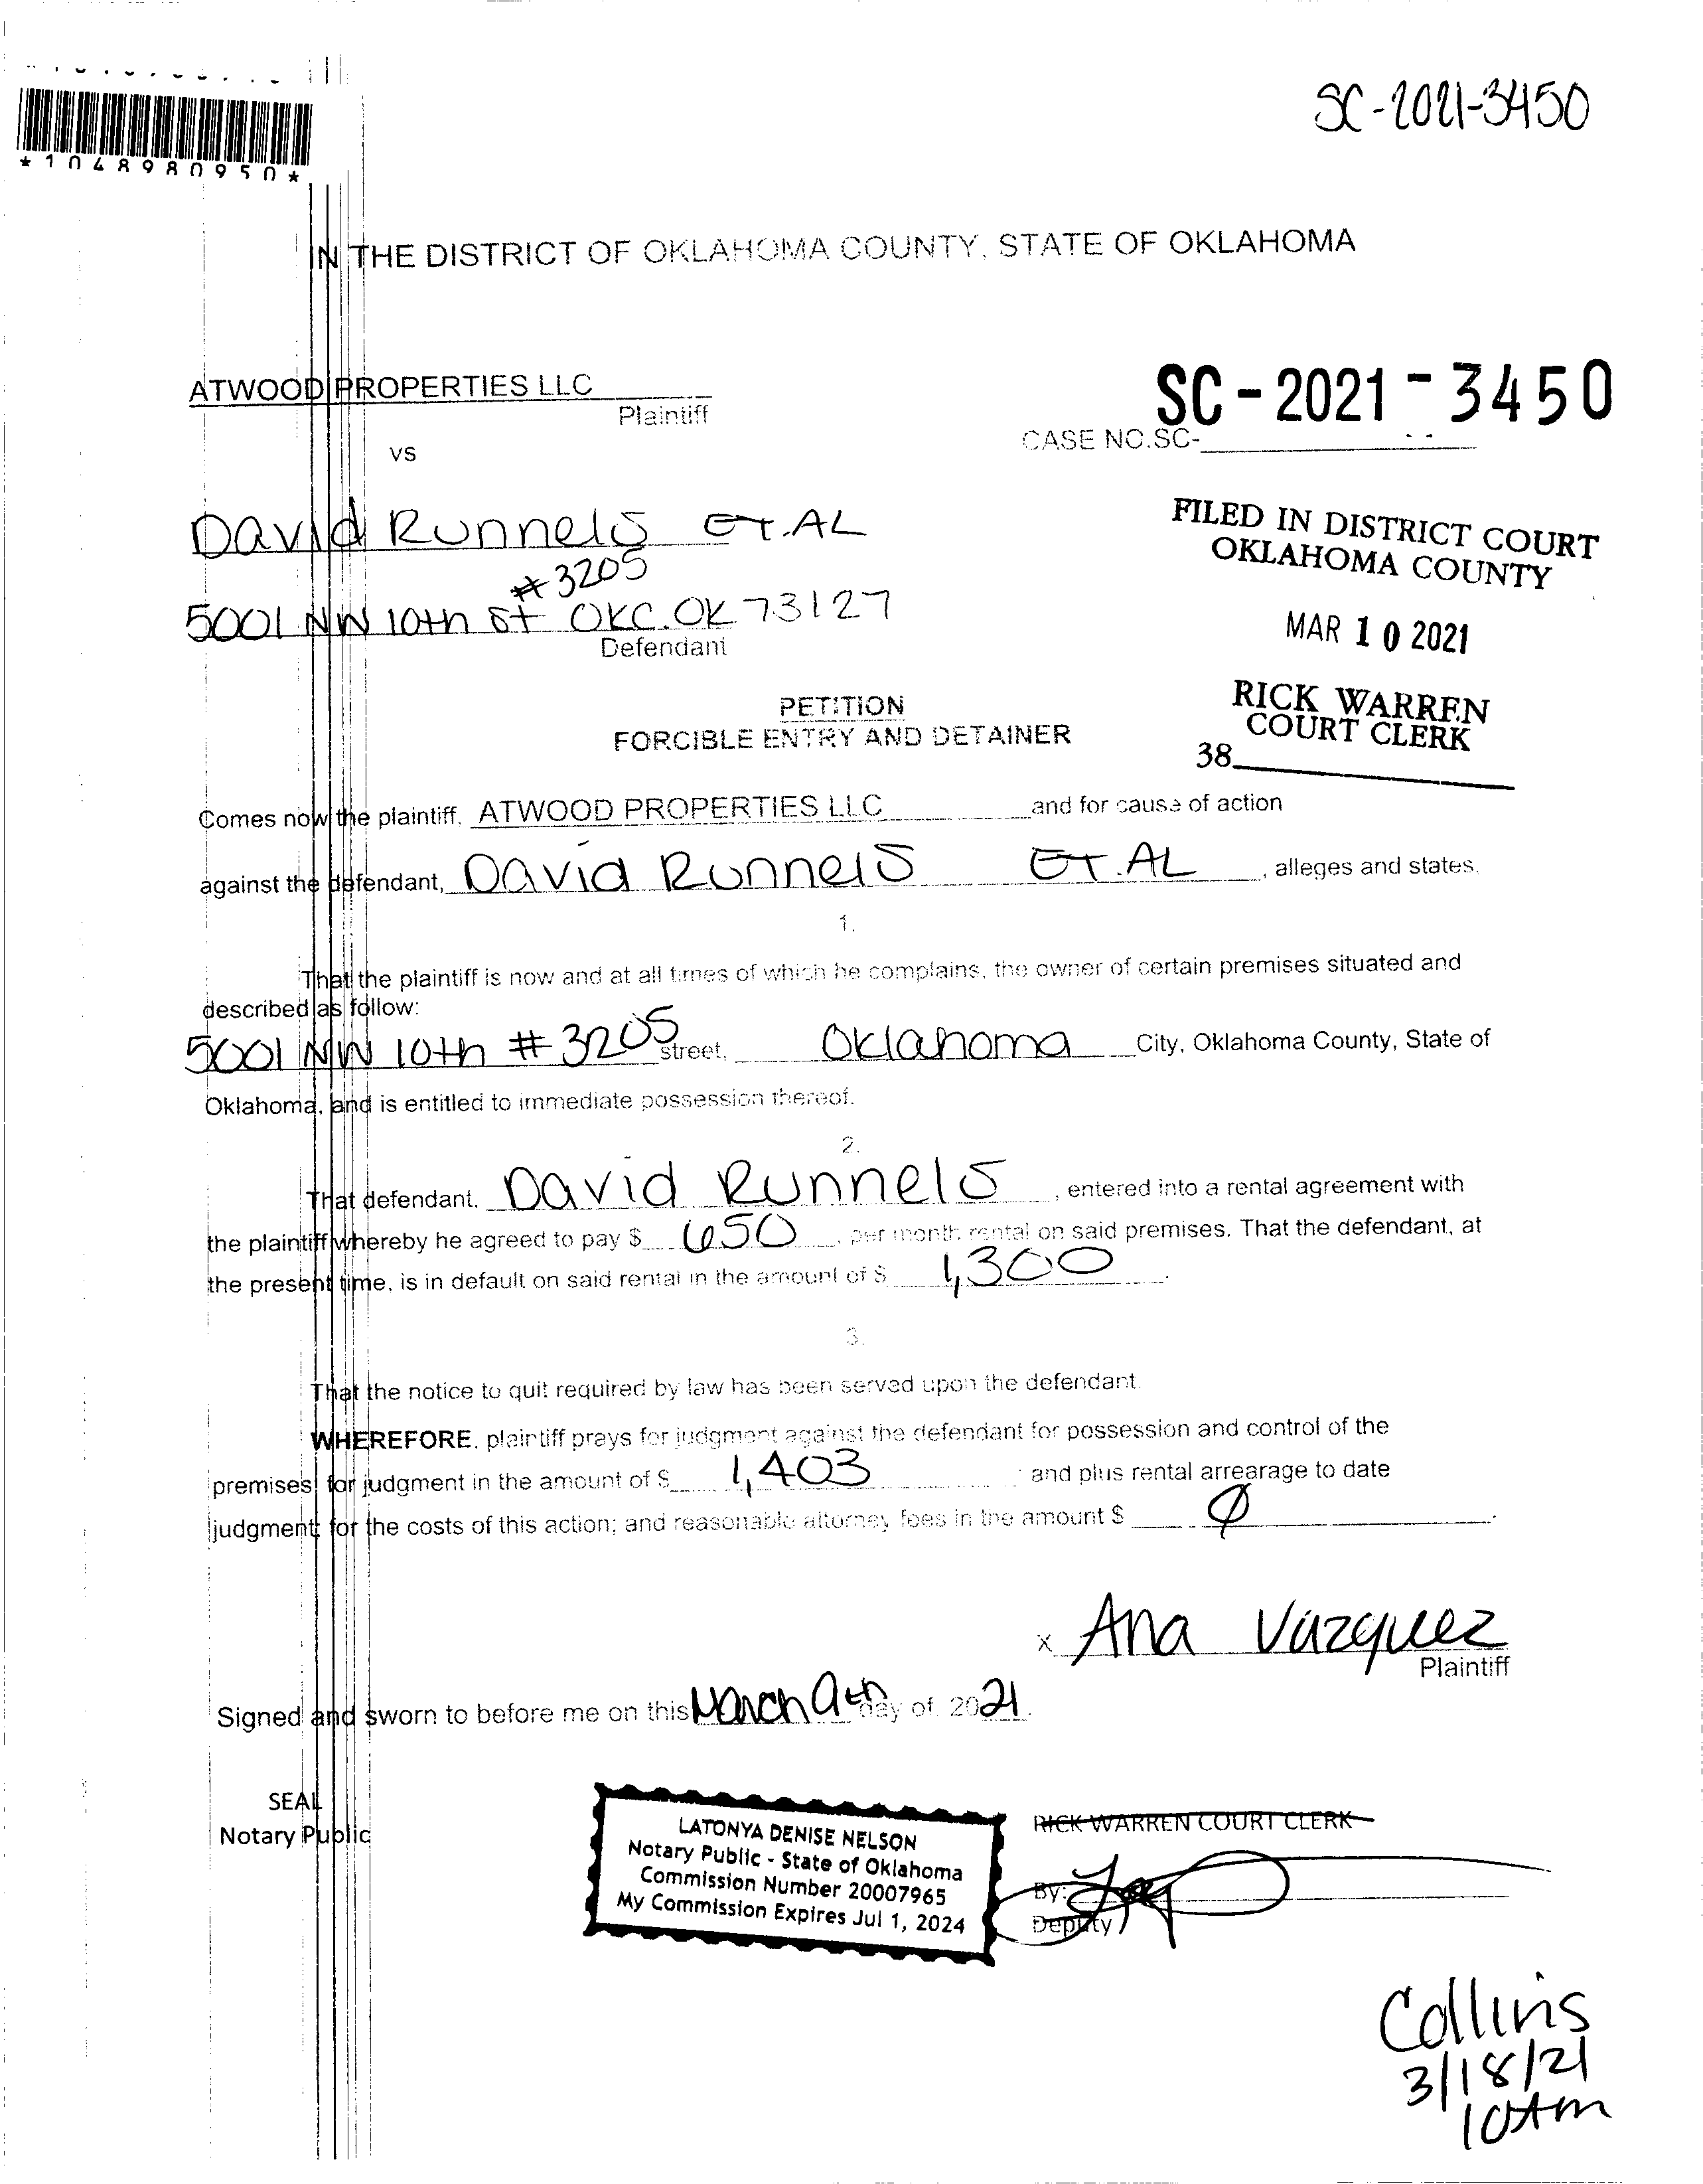 SC-2021-3450
*1048980950*
IN THE DISTRICT OF OKLAHOMA COUNTY, STATE OF OKLAHOMA
ATWOOD PROPERTIES LLC
Plaintiff
SC-2021-3450
CASE NO.SC-
vs
David Runnels ET.AL
#3205
5001 NW 10th St OKC.OK 73127
Defendant
FILED IN DISTRICT COURT
OKLAHOMA COUNTY
MAR 10 2021
RICK WARREN
COURT CLERK
38
PETITION
FORCIBLE ENTRY AND DETAINER
Comes now the plaintiff, ATWOOD PROPERTIES LLC and for cause of action
against the defendant, David Runnels ET.AL, alleges and states,
1.
That the plaintiff is now and at all times of which he complains, the owner of certain premises situated and
described as follow:
5001 NW 10th #3205 street, Oklahoma City, Oklahoma County, State of
Oklahoma, and is entitled to immediate possession thereof.
2.
That defendant, David Runnels, entered into a rental agreement with
the plaintiff whereby he agreed to pay $ 650, per month rental on said premises. That the defendant, at
the present time, is in default on said rental in the amount of $ 1,300.
3.
That the notice to quit required by law has been served upon the defendant.
WHEREFORE, plaintiff prays for judgment against the defendant for possession and control of the
premises; for judgment in the amount of $ 1,403; and plus rental arrearage to date
judgment; for the costs of this action; and reasonable attorney fees in the amount $ Ø.
x Ana Vazquez
Plaintiff
Signed and sworn to before me on this March 9th day of 2021.
SEAL
Notary Public
LATONYA DENISE NELSON
Notary Public - State of Oklahoma
Commission Number 20007965
My Commission Expires Jul 1, 2024
RICK WARREN COURT CLERK
By:
Deputy
Collins
3/18/21
10Am